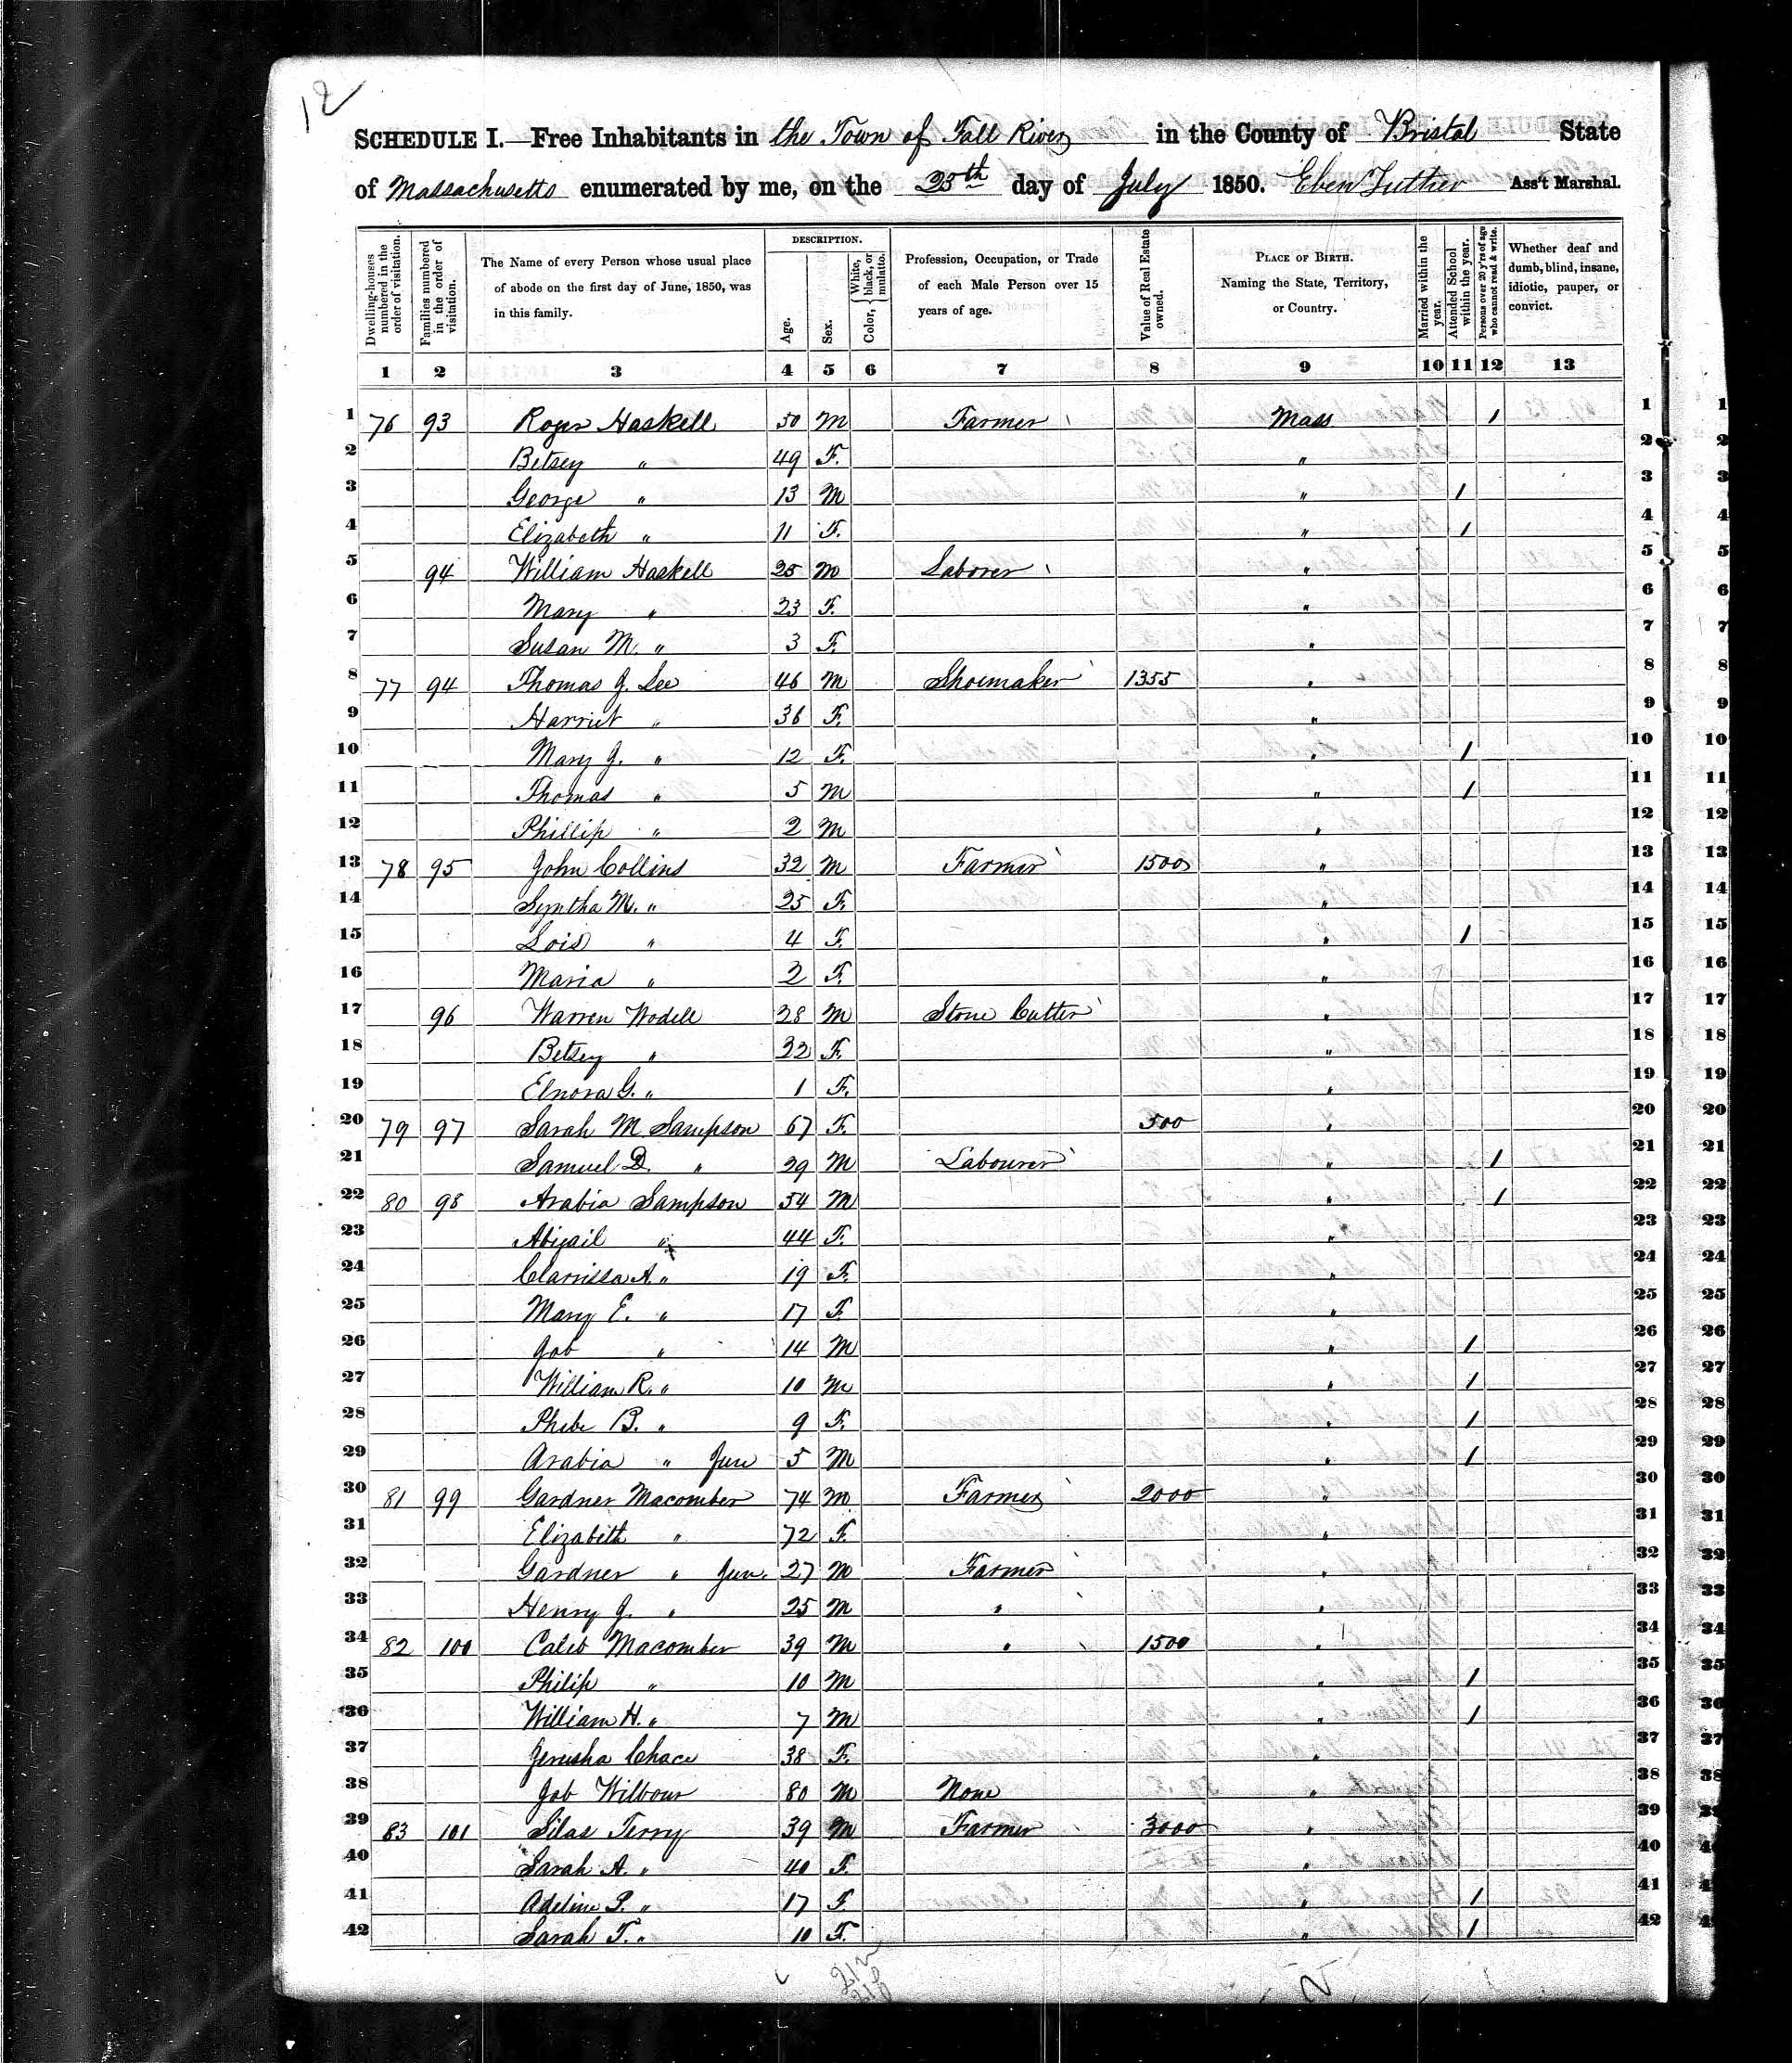 12
SCHEDULE I.—Free Inhabitants in the Town of Fall River in the County of Bristol State
of Massachusetts enumerated by me, on the 25th day of July 1850. Eben Luther Ass't Marshal.
Dwelling-houses numbered in the order of visitation.
Families numbered in the order of visitation.
The Name of every Person whose usual place of abode on the first day of June, 1850, was in this family.
DESCRIPTION.
Age.
Sex.
Color, { White, black, or mulatto.
Profession, Occupation, or Trade of each Male Person over 15 years of age.
Value of Real Estate owned.
PLACE OF BIRTH. Naming the State, Territory, or Country.
Married within the year.
Attended School within the year.
Persons over 20 y'rs of age who cannot read & write.
Whether deaf and dumb, blind, insane, idiotic, pauper, or convict.
1 2 3 4 5 6 7 8 9 10 11 12 13
1 76 93 Roger Haskell 50 M Farmer Mass 1 1
2 Betsey " 49 F. " 2
3 George " 13 M " 1 3
4 Elizabeth " 11 F. " 1 4
5 94 William Haskell 25 M Laborer " 5
6 Mary " 23 F. " 6
7 Susan M. " 3 F. " 7
8 77 94 Thomas J. Lee 46 M Shoemaker 1355 " 8
9 Harriet " 36 F. " 9
10 Mary J. " 12 F. " 1 10
11 Thomas " 5 M " 1 11
12 Phillip " 2 M " 12
13 78 95 John Collins 32 M Farmer 1500 " 13
14 Syntha M. " 25 F. " 14
15 Lois " 4 F. " 1 15
16 Maria " 2 F. " 16
17 96 Warren Wodell 28 M Stone Cutter " 17
18 Betsey " 22 F. " 18
19 Elnora G. " 1 F. " 19
20 79 97 Sarah M Sampson 67 F. 500 " 20
21 Samuel D. " 29 M Labourer " 1 21
22 80 98 Arabia Sampson 54 M " 1 22
23 Abigail " 44 F. " 23
24 Clarrissa A. " 19 F. " 24
25 Mary E. " 17 F " 25
26 Job " 14 M " 1 26
27 William R. " 10 M " 1 27
28 Phebe B. " 9 F. " 1 28
29 Arabia " Jun 5 M " 1 29
30 81 99 Gardner Macomber 74 M Farmer 2000 " 30
31 Elizabeth " 72 F. " 31
32 Gardner " Jun. 27 M Farmer " 32
33 Henry J. " 25 M " " 33
34 82 100 Caleb Macomber 39 M " 1500 " 34
35 Philip " 10 M " 1 35
36 William H. " 7 M " 1 36
37 Jerusha Chace 38 F. " 37
38 Job Wilbour 80 M None " 38
39 83 101 Silas Terry 39 M Farmer 3000 " 39
40 Sarah A. " 40 F. " 40
41 Adeline P. " 17 F " 1 41
42 Sarah F. " 10 F. " 1 42